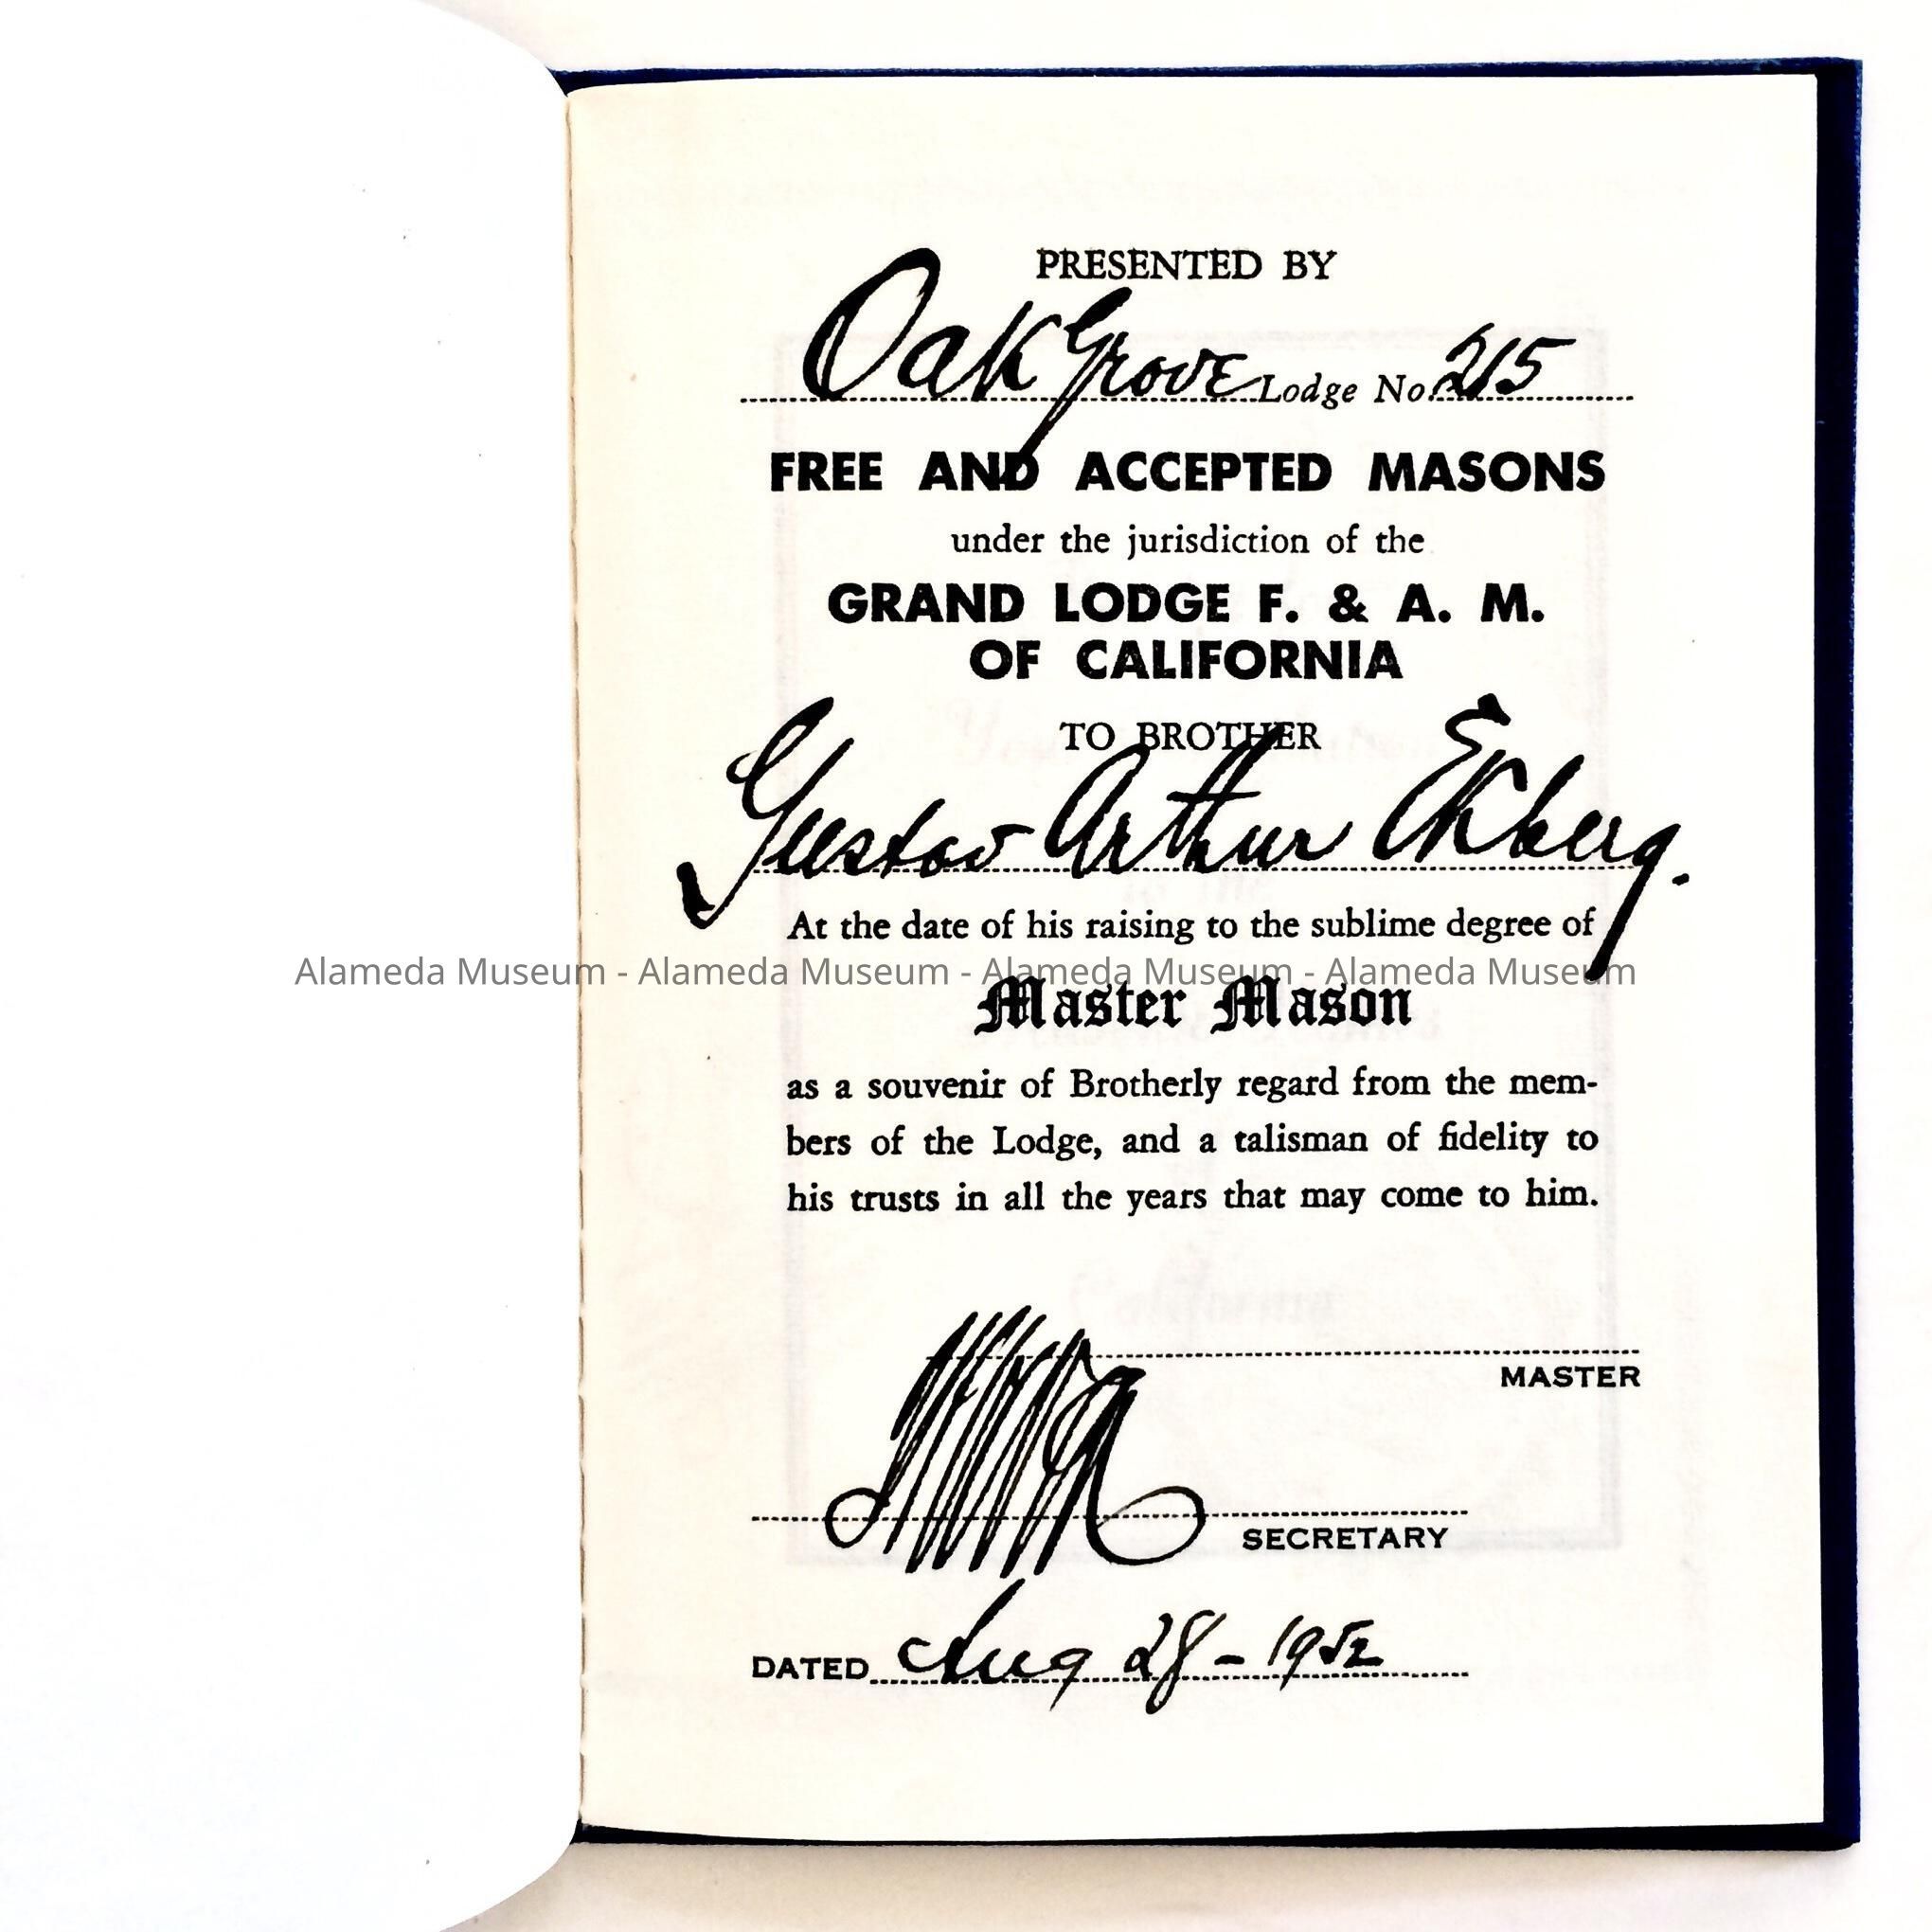 PRESENTED BY
Oak Grove Lodge No. 215
FREE AND ACCEPTED MASONS
under the jurisdiction of the
GRAND LODGE F. & A. M.
OF CALIFORNIA
TO BROTHER
Gustav Arthur Ekberg.
At the date of his raising to the sublime degree of
Alameda Museum - Alameda Museum - Alameda Museum - Alameda Museum
Master Mason
as a souvenir of Brotherly regard from the mem-
bers of the Lodge, and a talisman of fidelity to
his trusts in all the years that may come to him.
MASTER
SECRETARY
DATED Aug 28 - 1952